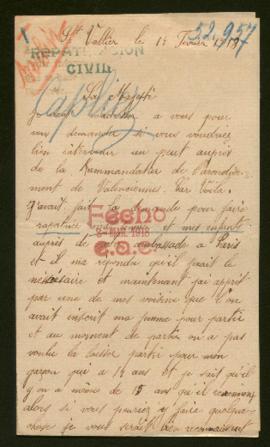 St Vallier le 1r Fevrier 1918
52.957
REPATRIACION
CIVIL
Sa Majesté
a vous pour
vous demander si vous voudriez
bien intervenir un peut auprès
de la Kommandantur de l'arondisse
ment de Valenciennes. Car Voila
J'avait fait la demande pour faire
rapatrier et mes enfants
auprès de votre ambassade a Paris
et il me repondu qu'il ferait le
nécessaire et maintenant j'ai apprit
par une de mes voisine que l'on
avait inscrit ma femme pour partir
et au moment de partir on a pas
voulu la laisser partir pour mon
garçon qui a 14 ans et je sait qu'il
y en a même de 15 ans qu'il
alors si vous pouriez y faire quelque
chose je vous serait bien reconnaissant
Fecho
1918